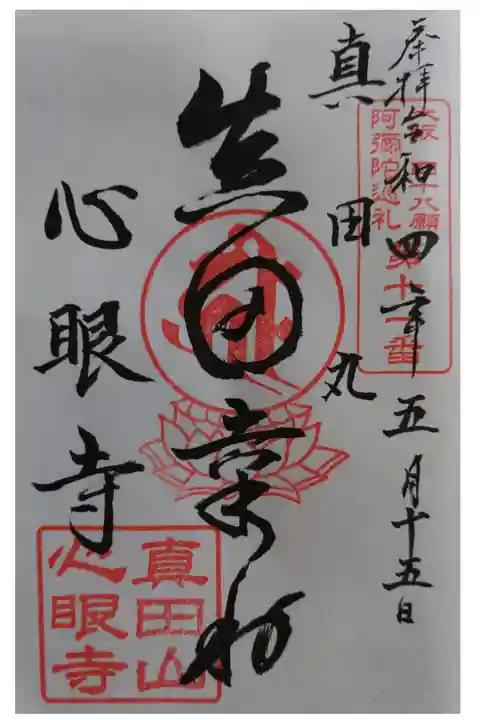 奉拝 令和四年五月十五日
大阪四十八願
阿彌陀巡礼
第十一番
真田丸
真田幸村
心眼寺
真田山
心眼寺